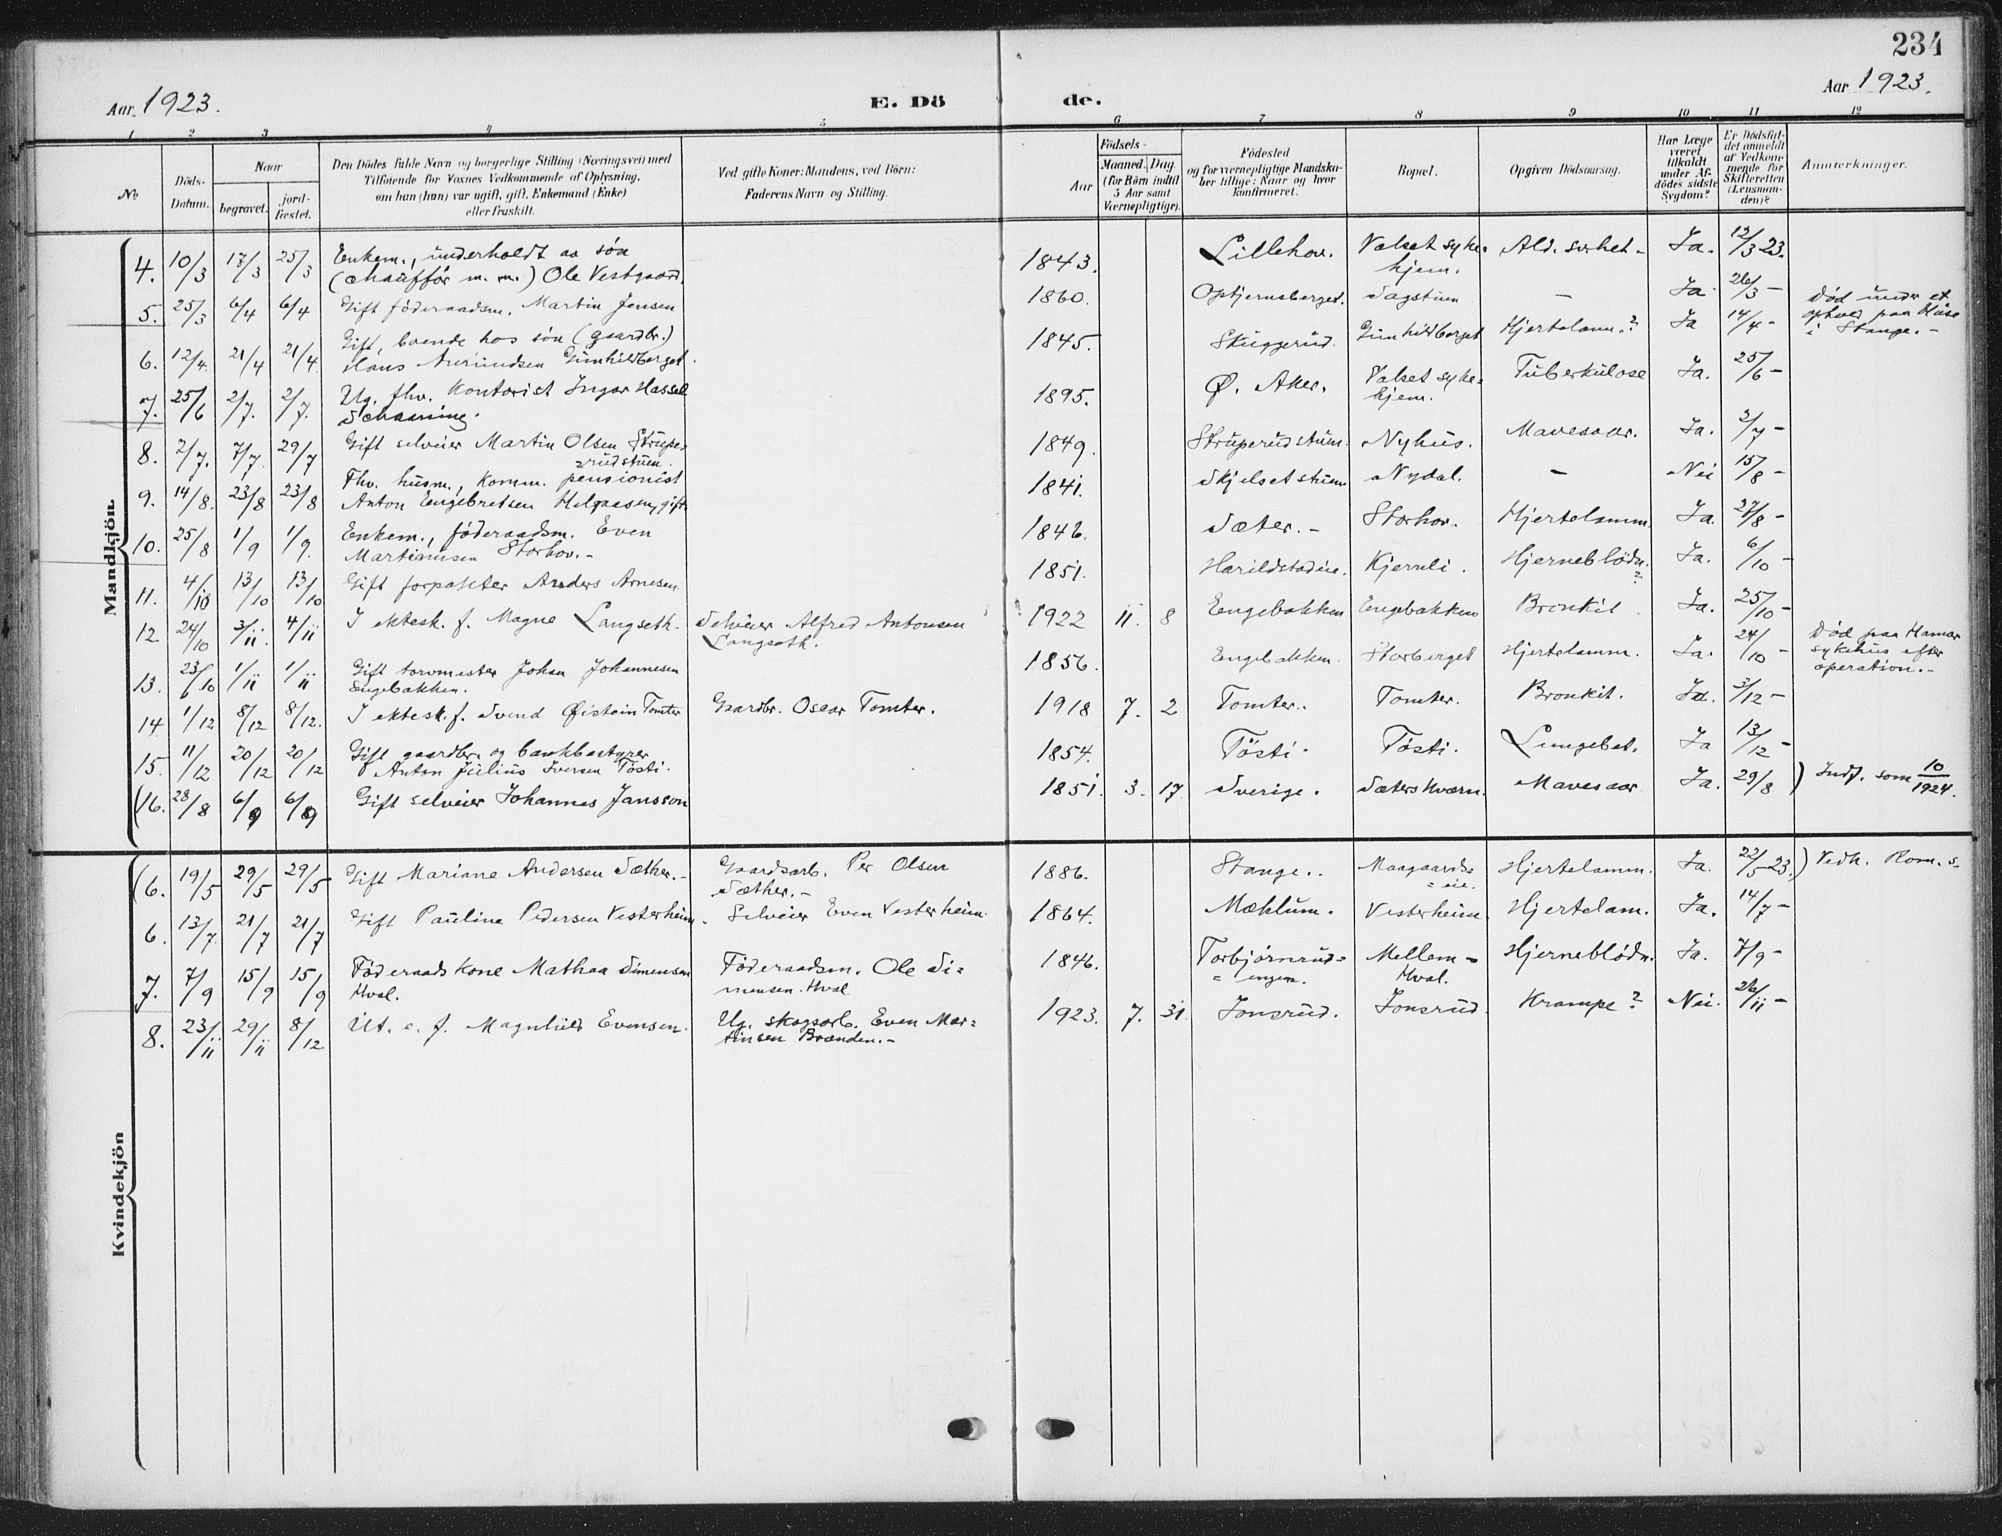 234
Aar 1923.
E. Dö
de.
Aar 1923.
1 2 3 4 5 6 7 8 9 10 11 12
No.
Döds-
Datum.
Naar
begravet.
jord-
fæstet.
Den Dödes fulde Navn og borgerlige Stilling (Næringsvei) med
Tilföiende for Voxnes Vedkommende af Oplysning,
om han (hun) var ugift, gift, Enkemand (Enke)
eller fraskilt.
Ved gifte Koner: Mandens, ved Börn:
Faderens Navn og Stilling.
Födsels-
Aar
Maaned.
Dag.
(for Börn indtil
5 Aar samt
Værnepligtige).
Födested
og for værnepligtige Mandska-
ber tillige: Naar og hvor
konfirmeret.
Bopæl.
Opgiven Dödsaarsag.
Har Læge
været
tilkaldt
under Af-
dödes sidste
Sygdom?
Er Dödsfal-
det anmeldt
af Vedkom-
mende for
Skifteretten
(Lensman-
den)?
Anmerkninger.
Mandkjön.
4. 10/3 17/3 25/3 Enkem., underholdt av søn
(chauffør m. m.) Ole Vestgaard. 1843. Lillehov. Valset syke-
hjem. Ald. svkhet - Ja. 12/3 23.
5. 25/3 6/4 6/4 Gift føderaadsm. Martin Jensen 1860. Optjernsberget. Sagstuen - Ja 26/3 - Død under et
ophold paa
i Stange. -
6. 12/4 21/4 21/4 Gift, boende hos søn (gaardbr.)
Hans Amundsen Gunhildberget. 1845. Skuggerud. Gunhildberget Hjertelam.? Ja 14/4 -
7. 25/6 2/7. 2/7. Ug. fhv. kontorist Ingar Hassel
Schaaning. 1895. Ø. Aker. Valset syke-
hjem. Tuberkulose Ja. 25/6 -
8. 2/7. 7/7. 29/7 Gift selveier Martin Olsen Strupe-
rudstuen. 1849. Struperudstuen. Nyhus. Mavesaar. Ja. 2/7 -
9. 14/8. 23/8 23/8 Fhv. husm., komm. pensionist
Anton Engebretsen Helgaasen, gift. 1841. Skjelsetstuen Nydal. - Nei 15/8 -
10. 25/8 1/9 1/9. Enkem., føderaadsm. Even
Martinusen Storhov. - 1846. Sæter. - Storhov. Hjertelamm. Ja. 27/8 -
11. 4/10 13/10 13/10 Gift forpakter Anders Arnesen. 1851. Harildstadeie. Kjernli. Hjerneblødn.
? Ja. 6/10 -
12. 24/10 3/11. 4/11 I ektesk. f. Magne Langseth. Selveier Alfred Antonsen
Langseth. 1922 11. 8 Engebakken Engebakken Bronkit. Ja. 25/10 -
13. 23/10 1/11 1/11 Gift torvmester Johan Johannesen
Engebakken. 1856. Engebakken. Storberget Hjertelamm. Ja. 24/10 - Død paa Hamar
sykehus efter
operation. -
14 1/12 8/12 8/12. I ektesk. f. Svend Øistein Tomter Gaardbr. Oscar Tomter. 1918 7. 2 Tomter. Tomter. Bronkit. Ja. 3/12 -
15. 11/12 20/12 20/12 Gift gaardbr. og bankbestyrer
Anton Julius Iversen Tøsti. 1854. Tøsti. Tøsti. Lungebet. Ja 13/12 -
(16. 28/8 6/9 6/9 Gift selveier Johannes Jansson 1851. 3. 17. Sverige. Sæterskværn. Mavesaar Ja. 29/8 ) Indf. som 10/1924.
Kvindekjön
(6. 19/5 29/5 29/5 Gift Mariane Andersen Sæther. - Gaardsarb. Per Olsen
Sæther. - 1886. Stange. Maagaards-
eie. Hjertelamm. Ja. 22/5 23. ) Vedk. Rom. s.
6. 13/7. 21/7 21/7 Gift Pauline Pedersen Vesterheim. Selveier Even Vesterheim. 1864. Mæhlum. Vesterheim. Hjertelam. Ja. 14/7 -
7. 7/9 15/9 15/9 Føderaadskone Mathea Simensen
Hval. Føderaadsm. Ole Si-
mensen Hval 1846. Torbjørnrud-
engen. Mellem-
Hval. Hjerneblødn. Ja. 7/9 -
8. 23/11 29/11 8/12 Ut. e. f. Magnhild Evensen. Ug. skogsarb. Even Mar-
tinsen Brænden. - 1923. 7. 31. Jonsrud. Jonsrud. Krampe? Nei. 26/11 -